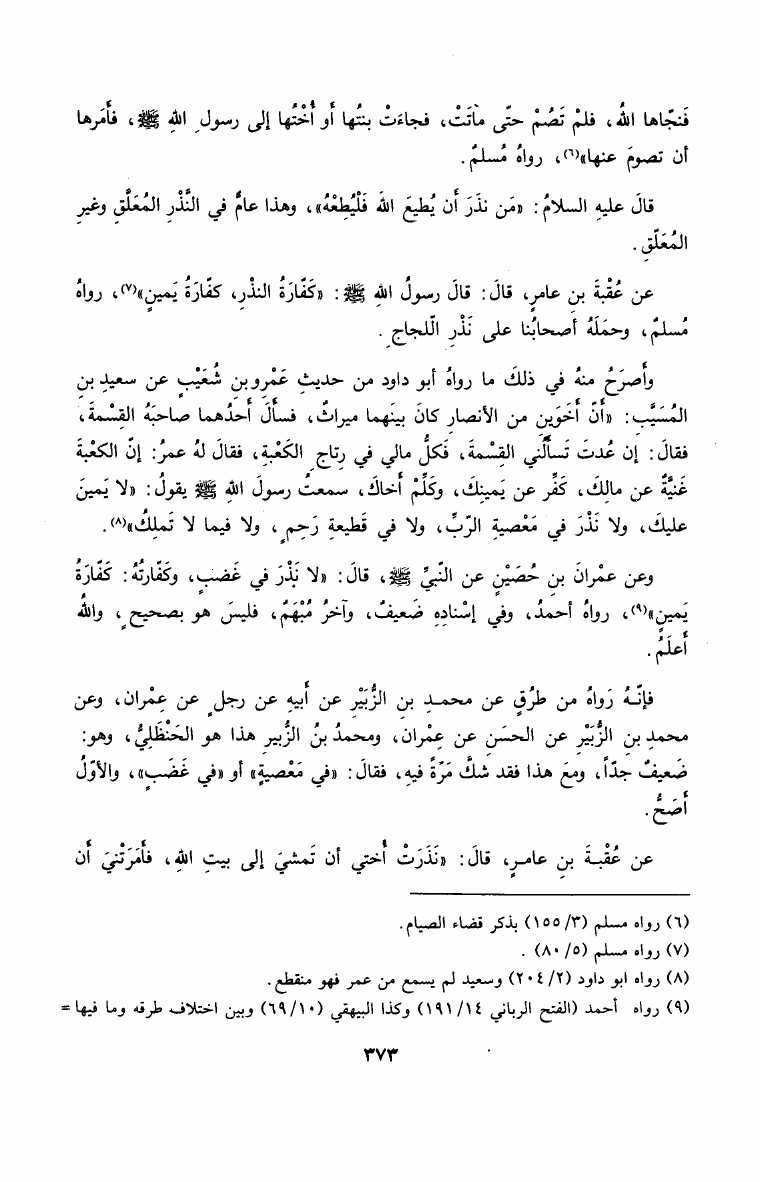 فَنجّاها اللهُ، فلمْ تَصُمْ حتّى ماتَتْ، فجاءَتْ بنتُها أو أُختُها إلى رسول اللهِ ﷺ، فأَمَرها
أن تصومَ عنها»(٦)، رواهُ مُسلمٌ.
قالَ عليهِ السلامُ: «مَن نذَرَ أن يُطيعَ اللهَ فَلْيُطِعْهُ»، وهذا عامٌّ في النَّذْرِ المُعَلَّقِ وغيرِ
المُعَلّقِ.
عن عُقْبةَ بنِ عامرٍ، قالَ: قالَ رسولُ اللهِ ﷺ: «كَفّارَةُ النذْرِ، كفّارَةُ يَمينٍ»(٧)، رواهُ
مُسلمٌ، وحمَلَهُ أصحابُنا على نَذْرِ الّلجاجِ.
وأَصرَحُ منهُ في ذلكَ ما رواهُ أبو داود من حديثِ عَمْرِو بنِ شُعَيْبٍ عن سعيدِ بنِ
المُسَيَّبِ: «أنّ أخَوَينِ من الأنصارِ كانَ بينَهما ميراثٌ، فسأَلَ أحدُهما صاحبَهُ القِسْمةَ،
فقالَ: إن عُدتَ تَسأَلُني القِسْمةَ، فَكلُّ مالي في رِتاجِ الكَعْبةِ، فقالَ لهُ عمرُ: إنّ الكعْبةَ
غَنيَّةٌ عن مالِكَ، كَفِّر عن يَمينِكَ، وكَلِّمْ أخاكَ، سمعتُ رسولَ اللهِ ﷺ يقولُ: «لا يَمينَ
عليكَ، ولا نَذْرَ في مَعْصيةِ الرّبِّ، ولا في قَطيعةِ رَحِمٍ، ولا فيما لا تَملِكُ»(٨).
وعن عمْرانَ بنِ حُصَيْنٍ عن النّبيِّ ﷺ، قالَ: «لا نَذْرَ في غَضبٍ، وكَفّارتُهُ: كَفّارَةُ
يَمينٍ»(٩)، رواهُ أحمدُ، وفي إسْنادِهِ ضَعيفٌ، وآخرُ مُبْهَمٌ، فليسَ هو بصحيحٍ، واللهُ
أعلَمُ.
فإنّهُ رَواهُ من طرُقٍ عن محمدِ بنِ الزُّبَيْرِ عن أبيهِ عن رجلٍ عن عِمْران، وعن
محمدِ بنِ الزُّبَيْرِ عن الحسَنِ عن عِمْران، ومحمدُ بنُ الزُّبيرِ هذا هو الحَنْظَليُّ، وهو:
ضَعيفٌ جدّاً، ومعَ هذا فقد شكَّ مَرّةً فيهِ، فقالَ: «في مَعْصيةٍ» أو «في غَضَبٍ»، والأوّلُ
أصَحُّ.
عن عُقْبةَ بنِ عامرٍ، قالَ: «نَذَرَتْ أختي أن تَمشيَ إلى بيتِ اللهِ، فأَمَرَتْنيَ أن
(٦) رواه مسلم (٣/ ١٥٥) بذكر قضاء الصيام.
(٧) رواه مسلم (٥/ ٨٠).
(٨) رواه ابو داود (٢/ ٢٠٤) وسعيد لم يسمع من عمر فهو منقطع.
(٩) رواه أحمد (الفتح الرباني ١٤/ ١٩١) وكذا البيهقي (١٠/ ٦٩) وبين اختلاف طرقه وما فيها =
٣٧٣